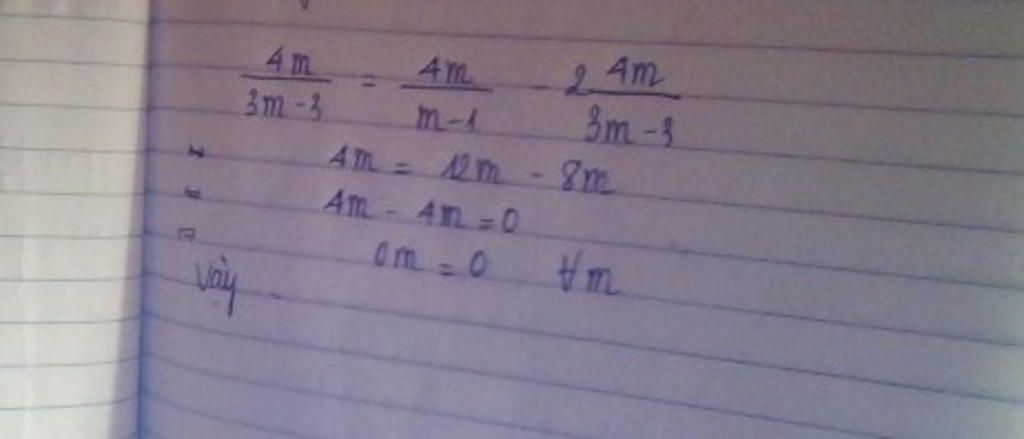 4m/(3m-3) = 4m/(m-1) - 2 4m/(3m-3)
4m = 12m - 8m
4m - 4m = 0
0m = 0 ∀m
Vậy